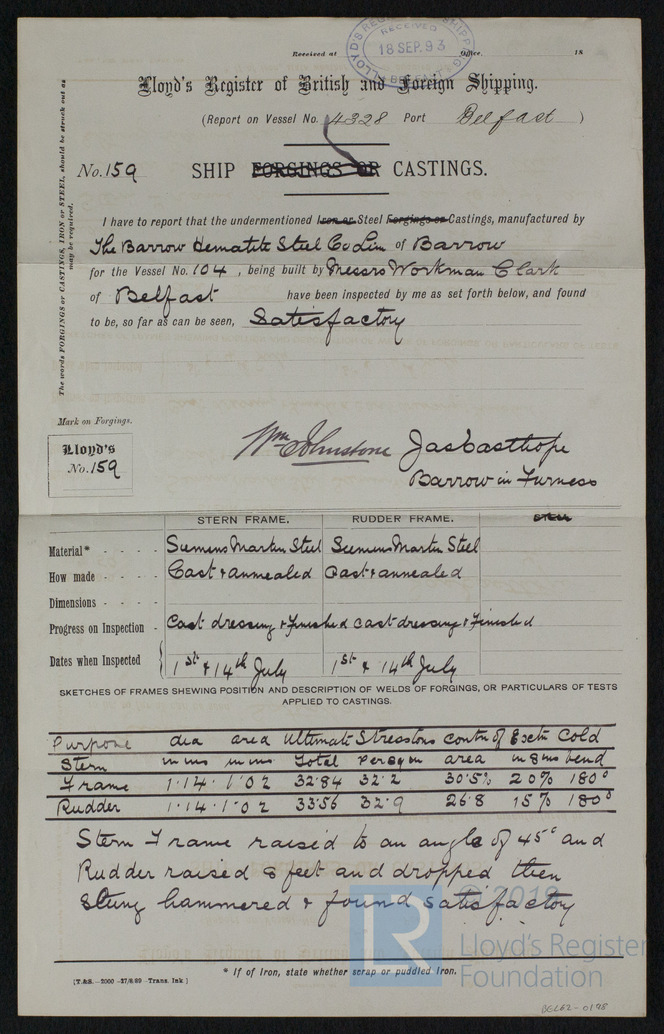 Received at Office, 18
LLOYD'S REGISTER SHIPPING
RECEIVED
18 SEP. 93
BELFAST
Lloyd's Register of British and Foreign Shipping.
(Report on Vessel No. 4328 Port Belfast )
No. 159 SHIP FORGINGS OR CASTINGS.
The words FORGINGS or CASTINGS, IRON or STEEL, should be struck out as
may be required.
I have to report that the undermentioned Iron or Steel Forgings or Castings, manufactured by
The Barrow Hematite Steel Co Lim of Barrow
for the Vessel No. 104 , being built by Messrs Workman Clark
of Belfast have been inspected by me as set forth below, and found
to be, so far as can be seen, Satisfactory
Mark on Forgings.
Lloyd's
No. 159
Wm Johnstone Jas Easthope
Barrow in Furness
STERN FRAME. RUDDER FRAME.
Material* - - - - Siemens Martin Steel Siemens Martin Steel
How made - - - - Cast & annealed Cast & annealed
Dimensions - - - -
Progress on Inspection - Cast dressing & Finished Cast dressing & Finished
Dates when Inspected 1st & 14th July 1st & 14th July
SKETCHES OF FRAMES SHEWING POSITION AND DESCRIPTION OF WELDS OF FORGINGS, OR PARTICULARS OF TESTS
APPLIED TO CASTINGS.
Purpose dia area Ultimate Stress tons contn of Extn Cold
Stern in ins in ins Total per sq in area in 8 ins bend
Frame 1·14 · 1·02 32·84 32·2 30·5% 20% 180°
Rudder 1·14 · 1·02 33·56 32·9 26·8 15% 180°
Stern Frame raised to an angle of 45° and
Rudder raised 8 feet and dropped then
Slung hammered & found satisfactory
© 2019
LR Lloyd's Register
Foundation
* If of Iron, state whether scrap or puddled Iron.
(T.&S.—2000 —27/8/89—Trans. Ink )
BEL62-0198